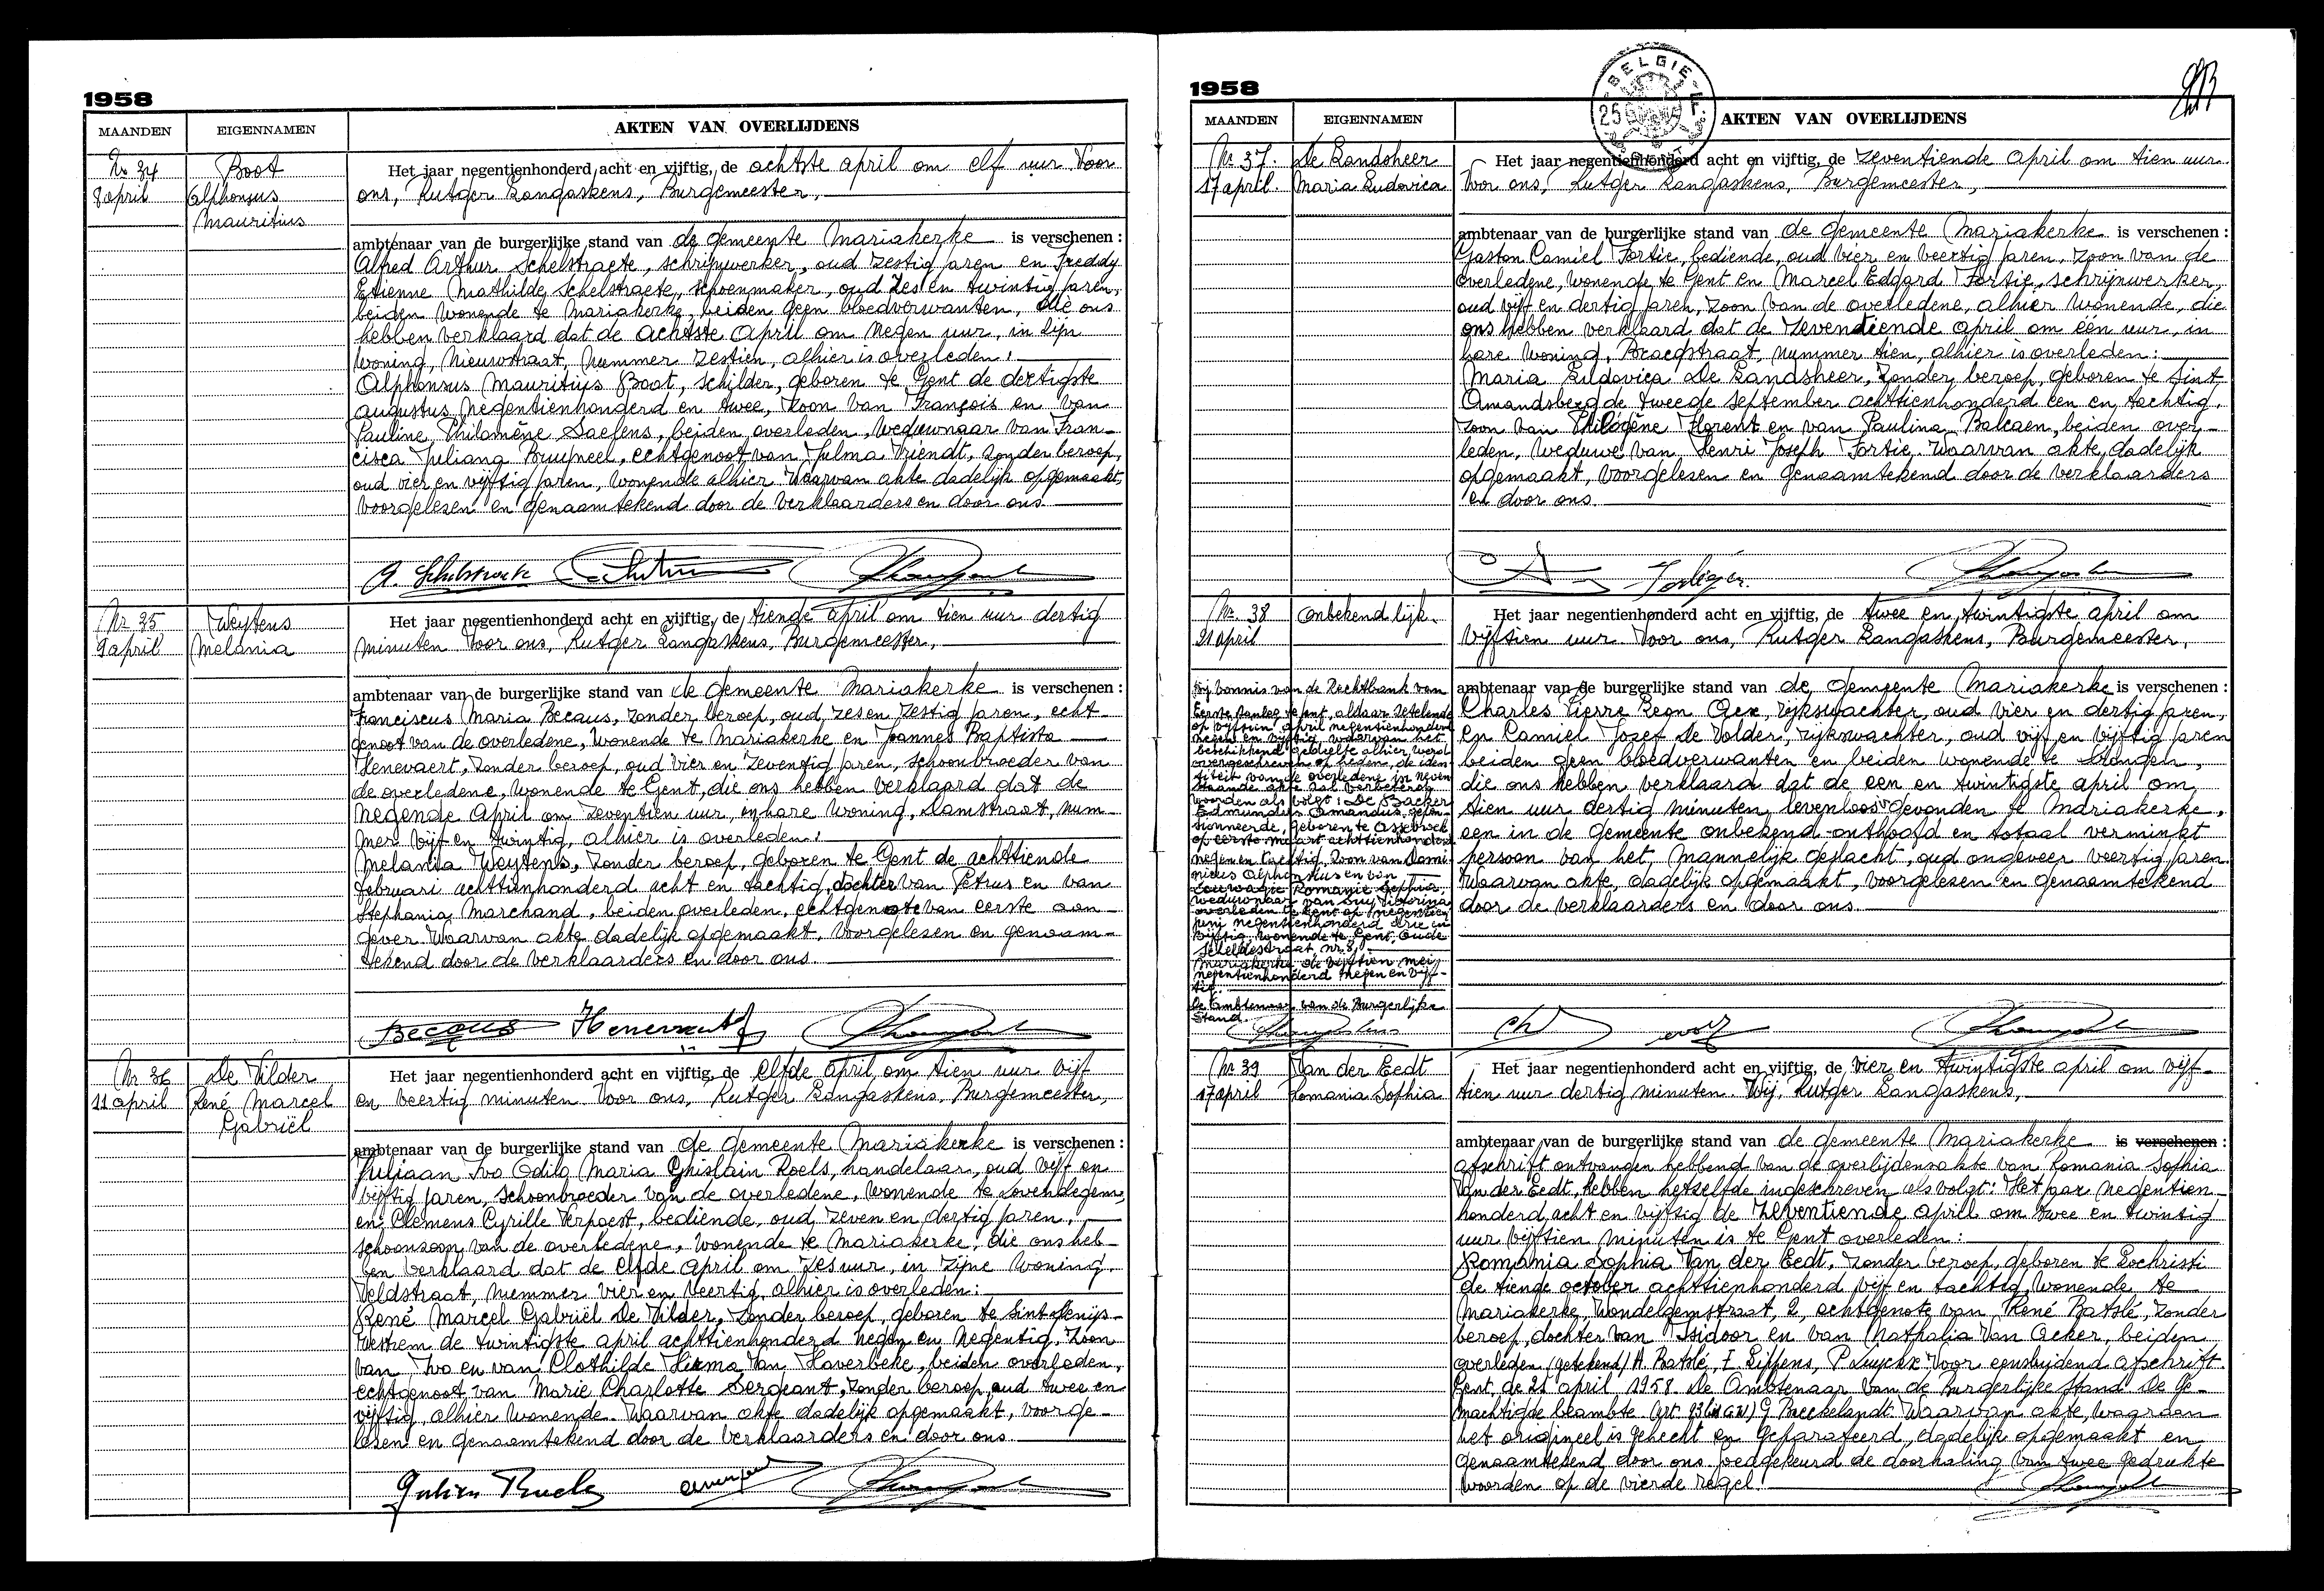 1958
MAANDEN
EIGENNAMEN
AKTEN VAN OVERLIJDENS
Nr 34
8 april
Boot
Alphonsus
Mauritius
Het jaar negentienhonderd acht en vijftig, de achtste april om elf uur Voor
ons, Rutger Langaskens, Burgemeester,
ambtenaar van de burgerlijke stand van de gemeente Mariakerke is verschenen :
Alfred Arthur Schelstraete, schrijnwerker, oud zestig jaren en Freddy
Etienne Mathilde Schelstraete, schoenmaker, oud zes en twintig jaren,
beiden wonende te Mariakerke, beiden geen bloedverwanten, die ons
hebben verklaard dat de achtste April om negen uur, in zijn
woning, Nieuwstraat, nummer zestien, alhier is overleden :
Alphonsus Mauritius Boot, schilder, geboren te Gent de dertigste
augustus negentienhonderd en twee, zoon van François en van
Pauline Philomène Saelens, beiden overleden, weduwnaar van Fran-
cisca Juliana Bruyneel, echtgenoot van Julma Vriendt, zonder beroep,
oud vier en vijftig jaren, wonende alhier. Waarvan akte dadelijk opgemaakt,
voorgelezen en genaamtekend door de verklaarders en door ons.
Nr 35
9 april
Weytens
Melania
Het jaar negentienhonderd acht en vijftig, de tiende april om tien uur dertig
minuten Voor ons, Rutger Langaskens, Burgemeester,
ambtenaar van de burgerlijke stand van de gemeente Mariakerke is verschenen :
Franciscus Maria Becaus, zonder beroep, oud zes en zestig jaren, echt-
genoot van de overledene, wonende te Mariakerke en Joannes Baptista
Henevaert, zonder beroep, oud vier en zeventig jaren, schoonbroeder van
de overledene, wonende te Gent, die ons hebben verklaard dat de
negende April om zeventien uur, in hare woning, Damstraat, num-
mer vijf en twintig, alhier is overleden :
Melania Weytens, zonder beroep, geboren te Gent de achttiende
februari achttienhonderd acht en tachtig, dochter van Petrus en van
Stephania Marchand, beiden overleden, echtgenote van eerste aan-
gever. Waarvan akte dadelijk opgemaakt, voorgelezen en genaam-
tekend door de verklaarders en door ons.
Becaus Henevaert
Nr 36
11 april
De Vilder
René Marcel
Gabriël
Het jaar negentienhonderd acht en vijftig, de elfde april om tien uur vijf
en veertig minuten Voor ons, Rutger Langaskens, Burgemeester,
ambtenaar van de burgerlijke stand van de gemeente Mariakerke is verschenen :
Juliaan Ivo Odilo Maria Ghislain Roels, handelaar, oud vijf en
vijftig jaren, schoonbroeder van de overledene, wonende te Lovendegem,
en Clemens Cyrille Verpoest, bediende, oud zeven en dertig jaren,
schoonzoon van de overledene, wonende te Mariakerke, die ons heb-
ben verklaard dat de elfde April om zes uur, in zijne woning,
Veldstraat, nummer vier en veertig, alhier is overleden :
René Marcel Gabriël De Vilder, zonder beroep, geboren te Sint-Denijs-
Westrem de twintigste april achttienhonderd negen en negentig, zoon
van Ivo en van Clothilde Van Haverbeke, beiden overleden,
echtgenoot van Marie Charlotte Sergeant, zonder beroep, oud twee en
vijftig, alhier wonende. Waarvan akte dadelijk opgemaakt, voorge-
lezen en genaamtekend door de verklaarders en door ons.
1958
BELGIE
MAANDEN
EIGENNAMEN
AKTEN VAN OVERLIJDENS
Nr. 37.
17 april.
De Landsheer
Maria Ludovica
Het jaar negentienhonderd acht en vijftig, de zeventiende april om tien uur
Voor ons, Rutger Langaskens, Burgemeester,
ambtenaar van de burgerlijke stand van de gemeente Mariakerke is verschenen :
Gaston Camiel Fortie, bediende, oud vier en veertig jaren, zoon van de
overledene, wonende te Gent en Marcel Edgard Fortie, schrijnwerker,
oud vijf en dertig jaren, zoon van de overledene, alhier wonende, die
ons hebben verklaard dat de zeventiende april om één uur, in
hare woning, Braegstraat, nummer tien, alhier is overleden :
Maria Ludovica De Landsheer, zonder beroep, geboren te Sint
Amandsberg de tweede september achttienhonderd een en tachtig,
zoon van Philogène Florent en van Paulina Balcaen, beiden over-
leden, weduwe van Henri Joseph Fortie. Waarvan akte dadelijk
opgemaakt, voorgelezen en genaamtekend door de verklaarders
en door ons.
Nr. 38
21 april
Onbekend lijk.
Het jaar negentienhonderd acht en vijftig, de twee en twintigste april om
vijftien uur Voor ons, Rutger Langaskens, Burgemeester,
ambtenaar van de burgerlijke stand van de gemeente Mariakerke is verschenen :
Charles Pierre Leon Gex, rijkswachter, oud vier en dertig jaren,
en Camiel Jozef De Volder, rijkswachter, oud vijf en vijftig jaren
beiden geen bloedverwanten en beiden wonende te Drongen,
die ons hebben verklaard dat de een en twintigste april om
tien uur dertig minuten, levenloos gevonden te Mariakerke,
een in de gemeente onbekend onthoofd en totaal verminkt
persoon van het mannelijk geslacht, oud ongeveer veertig jaren.
Waarvan akte, dadelijk opgemaakt, voorgelezen en genaamtekend
door de verklaarders en door ons.
Bij vonnis van de Rechtbank van
Eerste Aanleg te Gent, aldaar zetelende
op vijftien april negentienhonderd
negen en vijftig waarvan het
beschikkend gedeelte alhier werd
overgeschreven op heden, de iden-
titeit van de overledene in neven
staande akte zal verbeterd
worden als volgt : De Backer
Edmundus Amandus, gepen-
sionneerde, geboren te Assebroek
op eerste maart achttienhonderd
negen en tachtig, zoon van Domi-
nicus Alphonsus en van
Romanie Sophia,
weduwnaar van Victorina
overleden te Gent op negentien
juni negentienhonderd drie en
vijftig, wonende te Gent, Oude
Scheldestraat nr. 8,
Mariakerke de vijftien mei
negentienhonderd negen en vijf-
tig.
De Ambtenaar van de Burgerlijke
Stand.
Nr. 39
17 april
Van der Eedt
Romania Sophia
Het jaar negentienhonderd acht en vijftig, de vier en twintigste april om vijf-
tien uur dertig minuten. Wij, Rutger Langaskens,
ambtenaar van de burgerlijke stand van de gemeente Mariakerke is verschenen :
afschrift ontvangen hebbend van de overlijdensakte van Romania Sophia
Van der Eedt, hebben hetzelfde ingeschreven als volgt : Het jaar negentien-
honderd acht en vijftig de zeventiende april om twee en twintig
uur vijftien minuten is te Gent overleden :
Romania Sophia Van der Eedt, zonder beroep, geboren te Lochristi
de tiende october achttienhonderd vijf en tachtig, wonende te
Mariakerke, Wondelgemstraat, 2, echtgenote van René Batslé, zonder
beroep, dochter van Isidoor en van Nathalia Van Acker, beiden
overleden (getekend) H. Batslé, F. Lippens, P. Luyckx Voor eensluidend afschrift
Gent, de 21 april 1958. De Ambtenaar van de Burgerlijke Stand De Ge-
machtigde beambte (Art. 93 G.W.) G Breckelandt. Waarvan akte, waaraan
het origineel is gehecht en geparafeerd, dadelijk opgemaakt en
genaamtekend door ons. Goedgekeurd de doorhaling van twee gedrukte
woorden op de vierde regel.